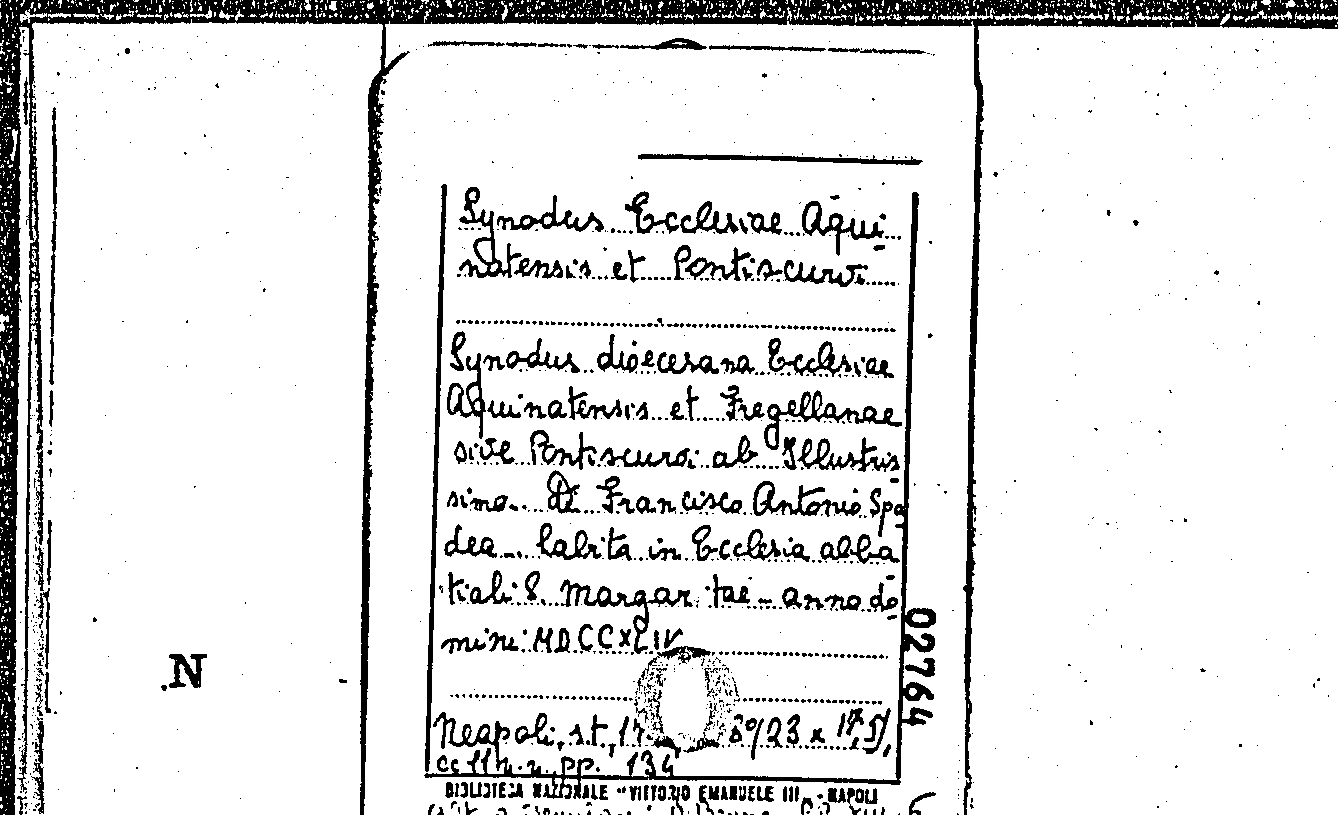 Synodus Ecclesiae Aqui-
natensis et Pontiscurvi
Synodus dioecesana Ecclesiae
Aquinatensis et Fregellanae
sive Pontiscurvi ab Illustris-
simo.. D. Francisco Antonio Spa-
dea... habita in Ecclesia abba-
tiali S. Margaritae - anno do-
mini MDCCXLIV
Neapoli, s.t., 17 8°/23 x 17,5/,
cc II n.n., pp. 134
BIBLIOTECA NAZIONALE "VITTORIO EMANUELE III" - NAPOLI
02764
N